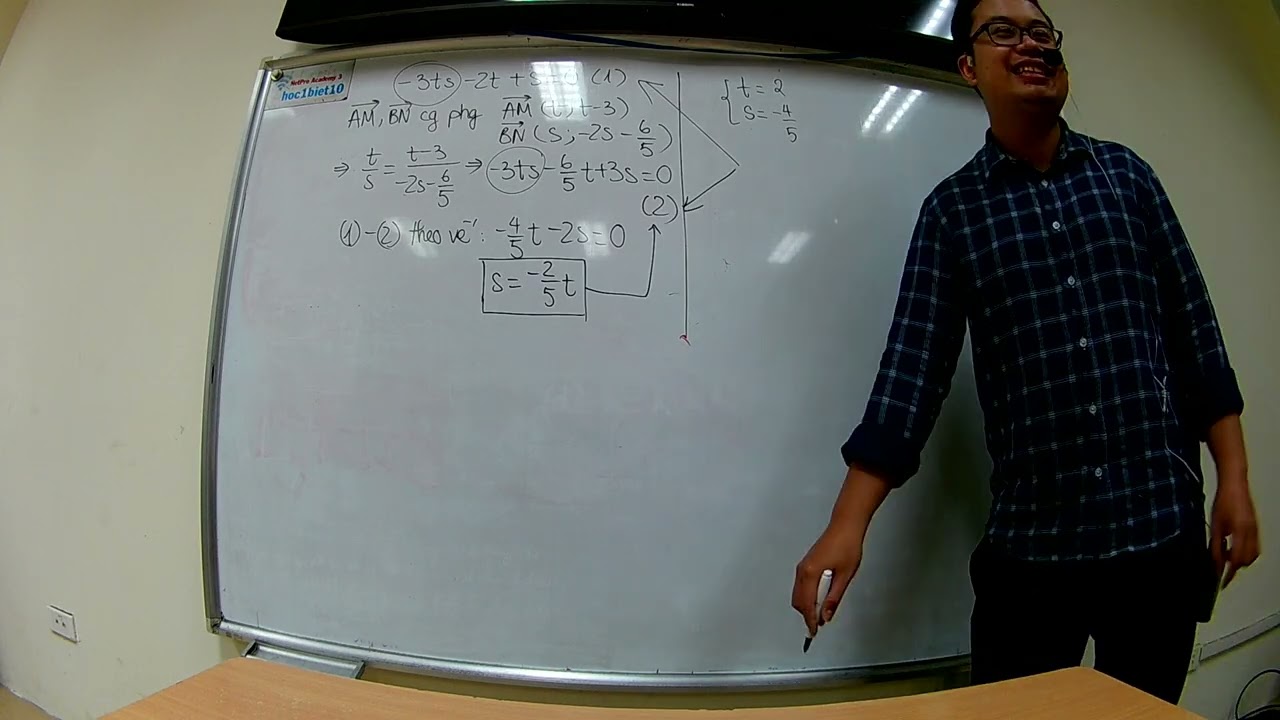 NetPro Academy 3
hoc1biet10
-3ts - 2t + s = 0 (1)
AM, BN cg phg AM (t; t-3)
BN (s; -2s - 6/5)
⇒ t/s = (t-3)/(-2s - 6/5) ⇒ -3ts - 6/5 t + 3s = 0
(2)
① - ② theo vế: -4/5 t - 2s = 0
s = -2/5 t
{ t = 2
s = -4/5